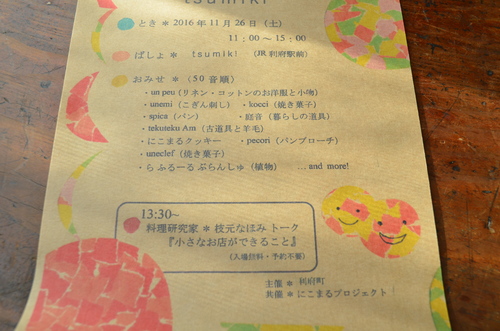 tsumiki
とき＊2016年11月26日（土）
11：00〜15：00
ばしょ＊ tsumiki （JR利府駅前）
おみせ＊（50音順）
・un peu（リネン・コットンのお洋服と小物）
・unemi（こぎん刺し）　・kocci（焼き菓子）
・spica（パン）　・庭音（暮らしの道具）
・tekuteku Am（古道具と羊毛）
・にこまるクッキー　・pecori（パンブローチ）
・uneclef（焼き菓子）
・らふるーるぶらんしゅ（植物）　…and more!
13:30~
料理研究家＊枝元なほみ トーク
『小さなお店ができること』
（入場無料・予約不要）
主催＊利府町
共催＊にこまるプロジェクト